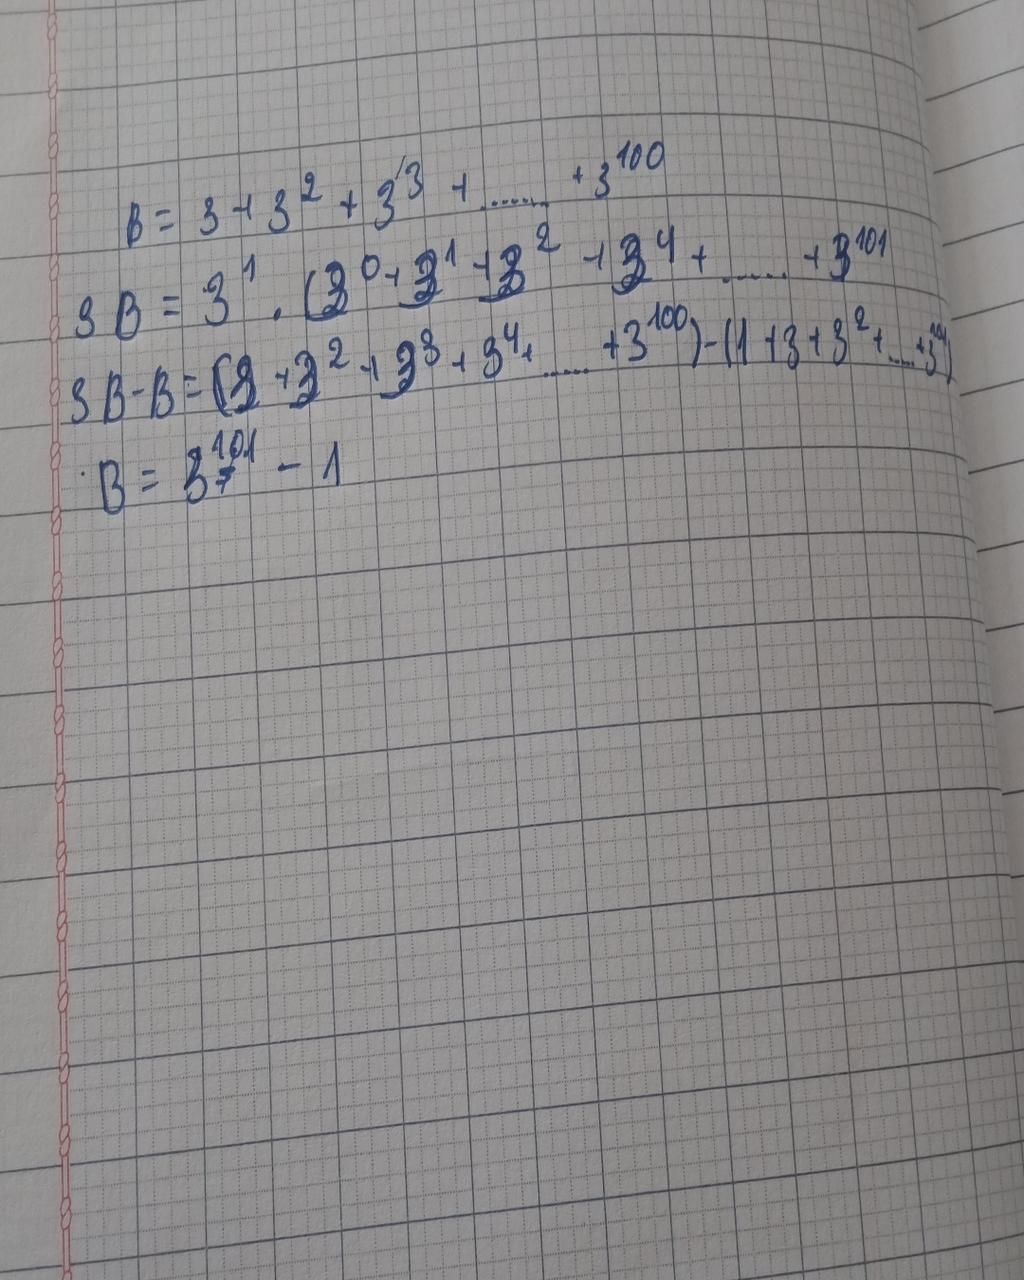 B = 3 + 3² + 3³ + ...... + 3¹⁰⁰
3B = 3¹ . (3⁰ + 3¹ + 3² + 3⁴ + ...... + 3¹⁰¹
3B - B = (3 + 3² + 3³ + 3⁴ + ..... + 3¹⁰⁰) - (1 + 3 + 3² + ..... + 3¹⁰¹)
B = 3¹⁰¹ - 1